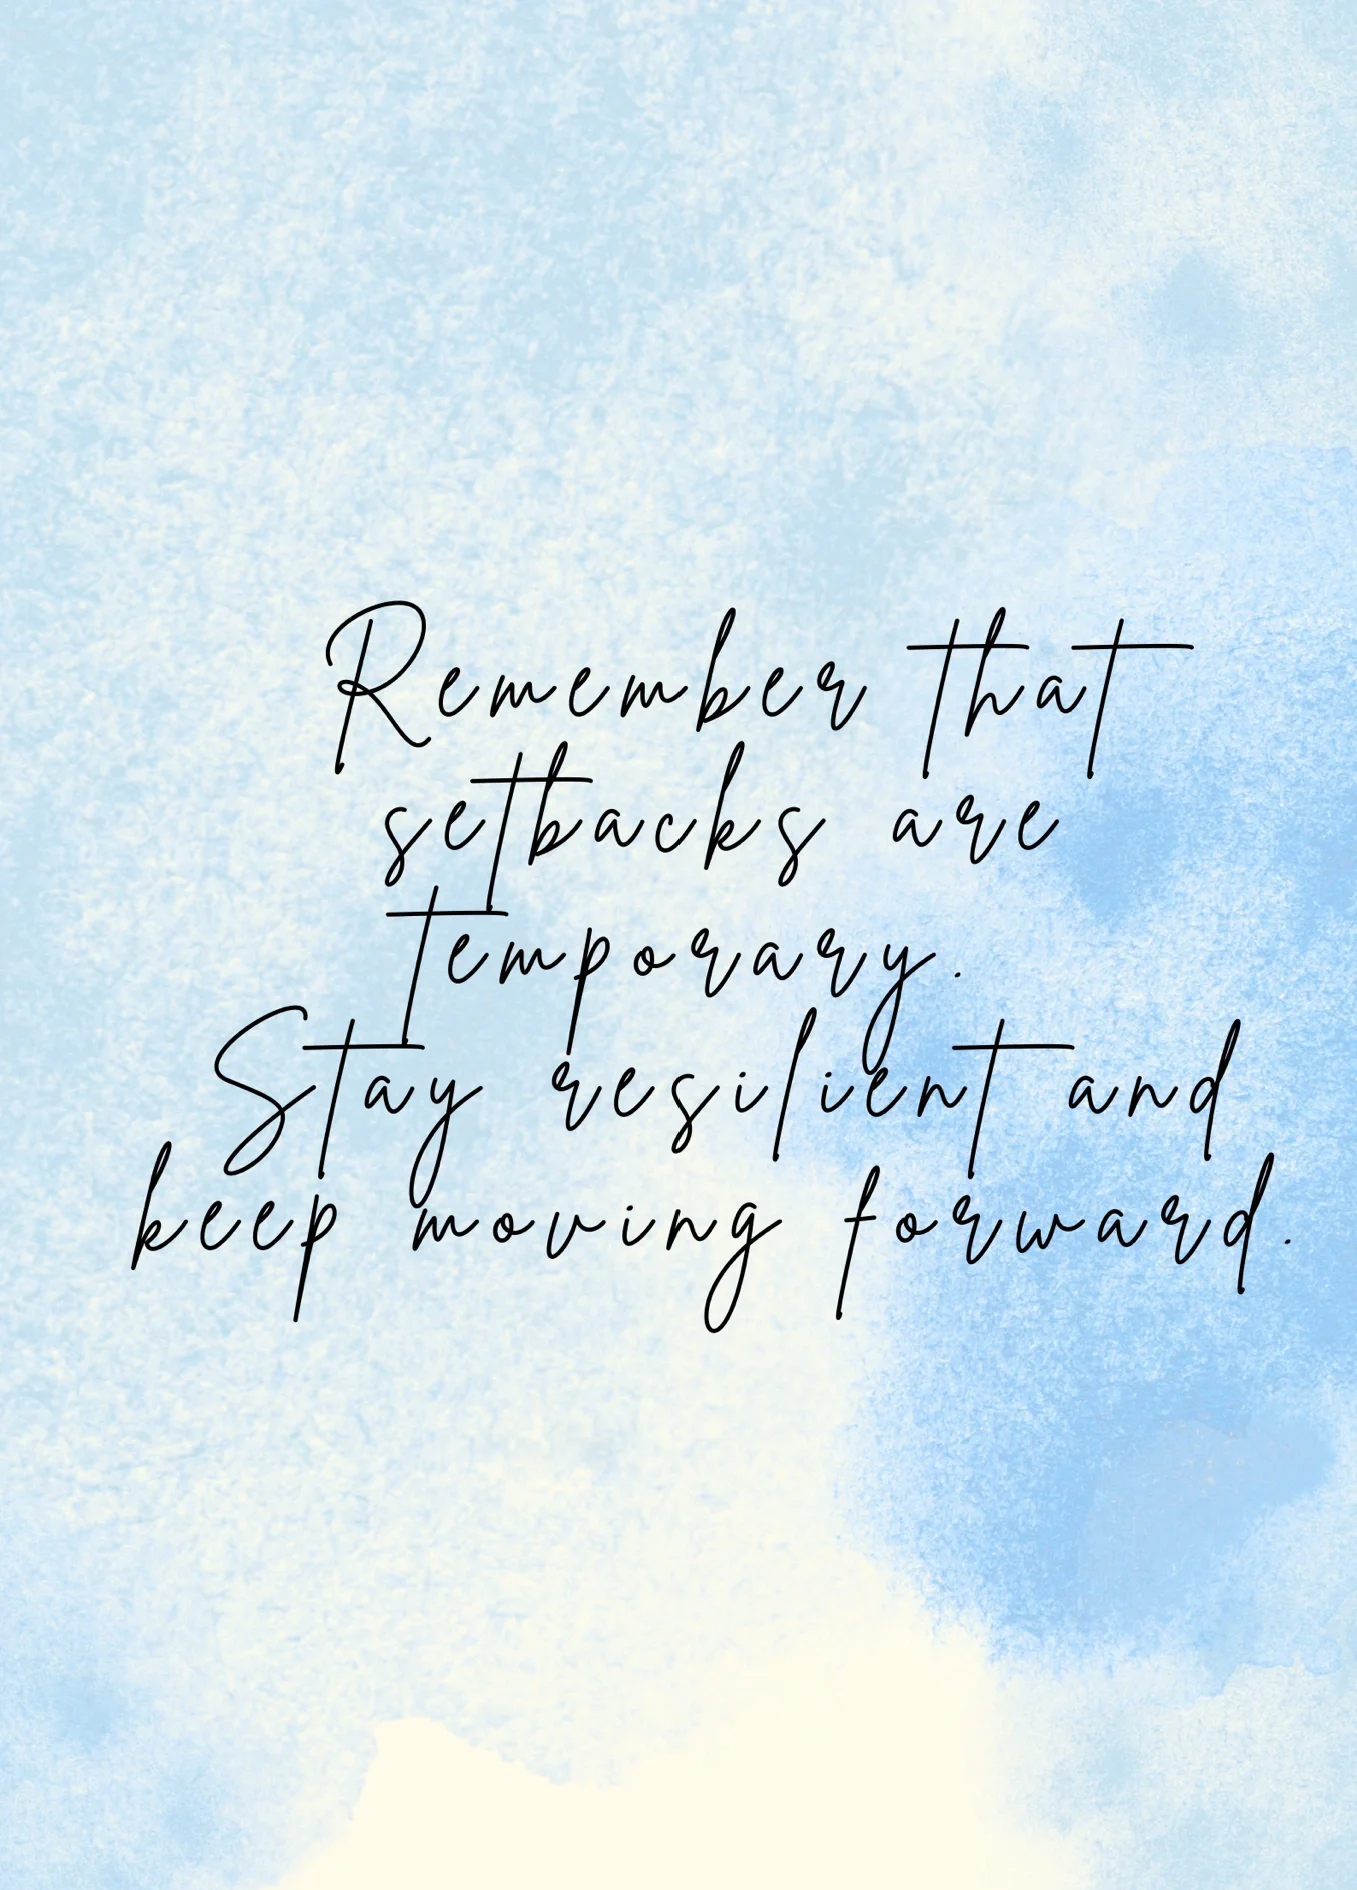 Remember that
setbacks are
temporary.
Stay resilient and
keep moving forward.